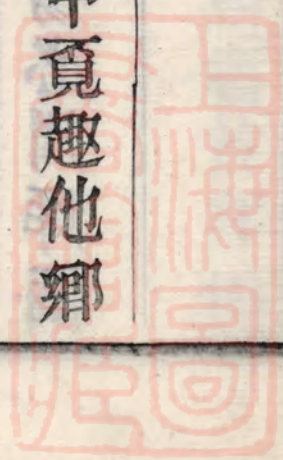 覔趣他鄉
上海圖
書館藏